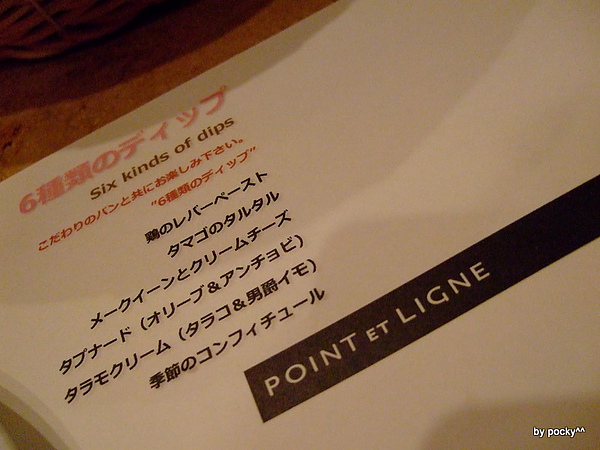 6種類のディップ
Six kinds of dips
こだわりのパンと共にお楽しみ下さい。
"6種類のディップ"
鶏のレバーペースト
タマゴのタルタル
メークイーンとクリームチーズ
タプナード（オリーブ＆アンチョビ）
タラモクリーム（タラコ＆男爵イモ）
季節のコンフィチュール
POINT ET LIGNE
by pocky^^